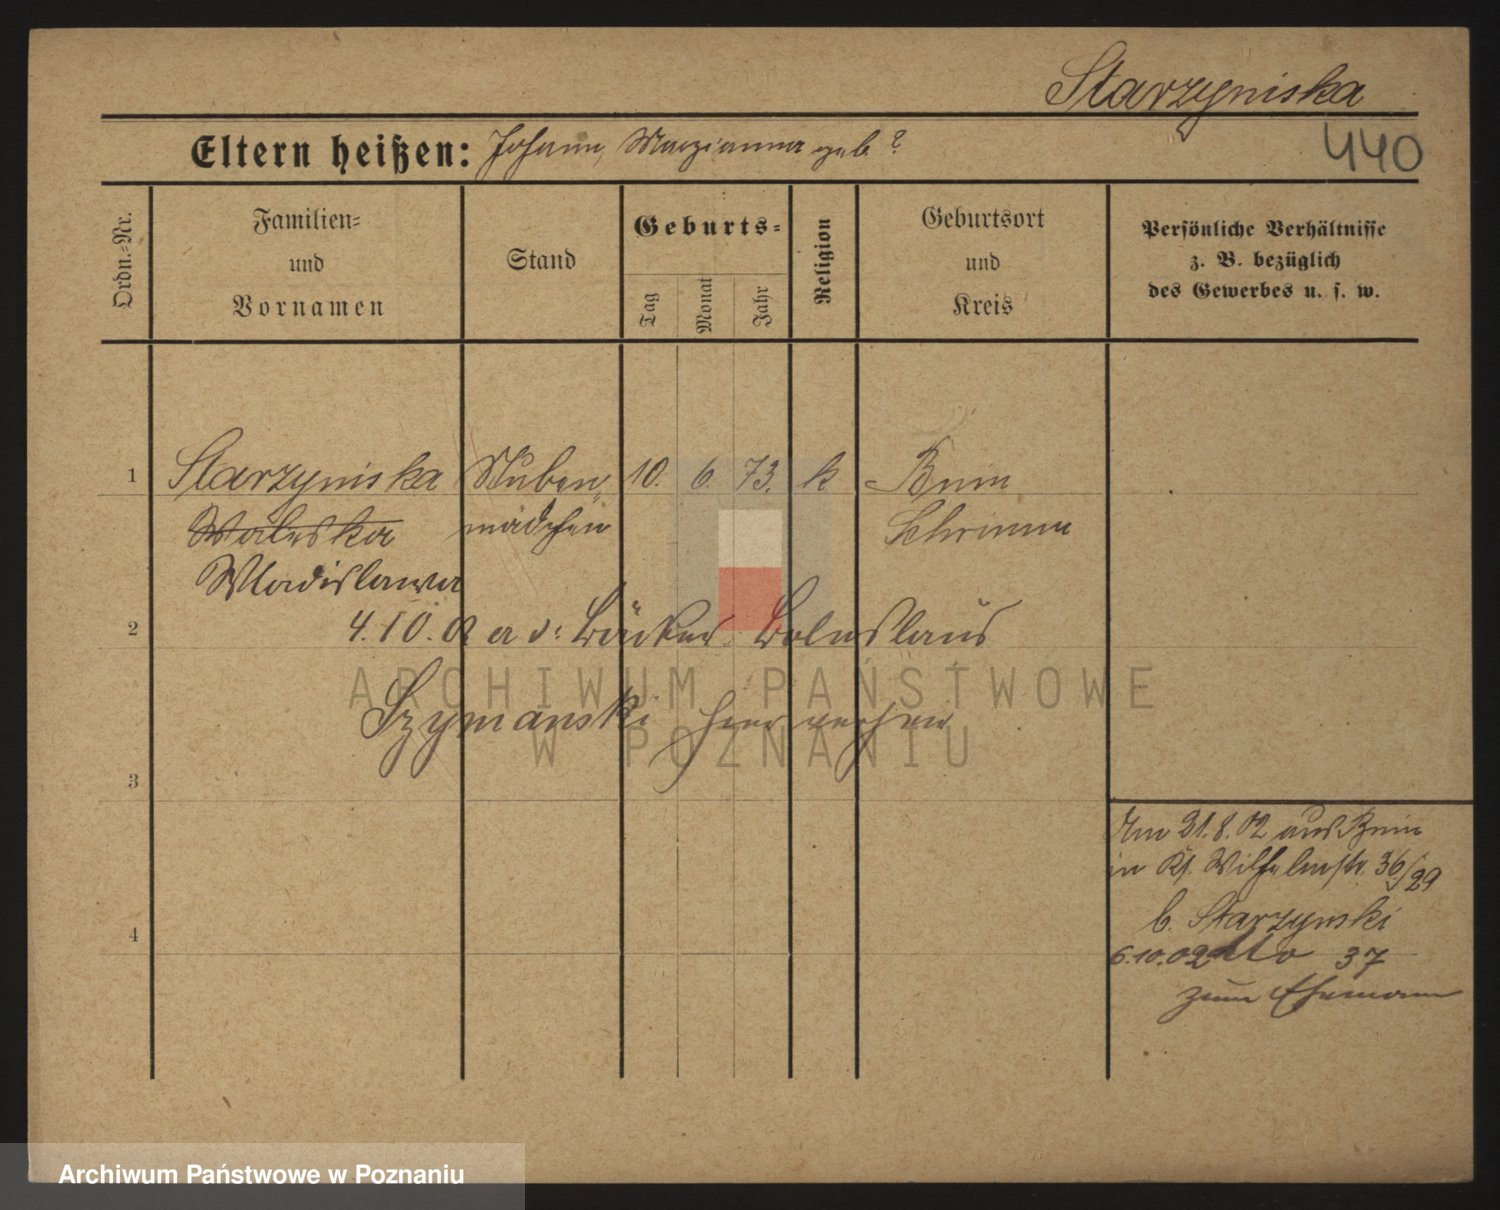 Starzyniska
440
Eltern heißen: Johann, Marzianna geb. ?
Ordn.=Nr.
Familien=
und
Vornamen
Stand
Geburts=
Tag
Monat
Jahr
Religion
Geburtsort
und
Kreis
Persönliche Verhältnisse
z. B. bezüglich
des Gewerbes u. s. w.
1 Starzyniska Stuben 10. 6. 73. k Bnin
Waleska mädchen Schrimm
Wladislawa
2 4.10.02 a. d. Bäcker Boleslaus
Szymanski hier
3
4
Am 21.8.02 aus Bnin
in Wilhelmstr. 36/29
b. Starzynski
6.10.02 37
zum Ehemann
ARCHIWUM PAŃSTWOWE
W POZNANIU
Archiwum Państwowe w Poznaniu